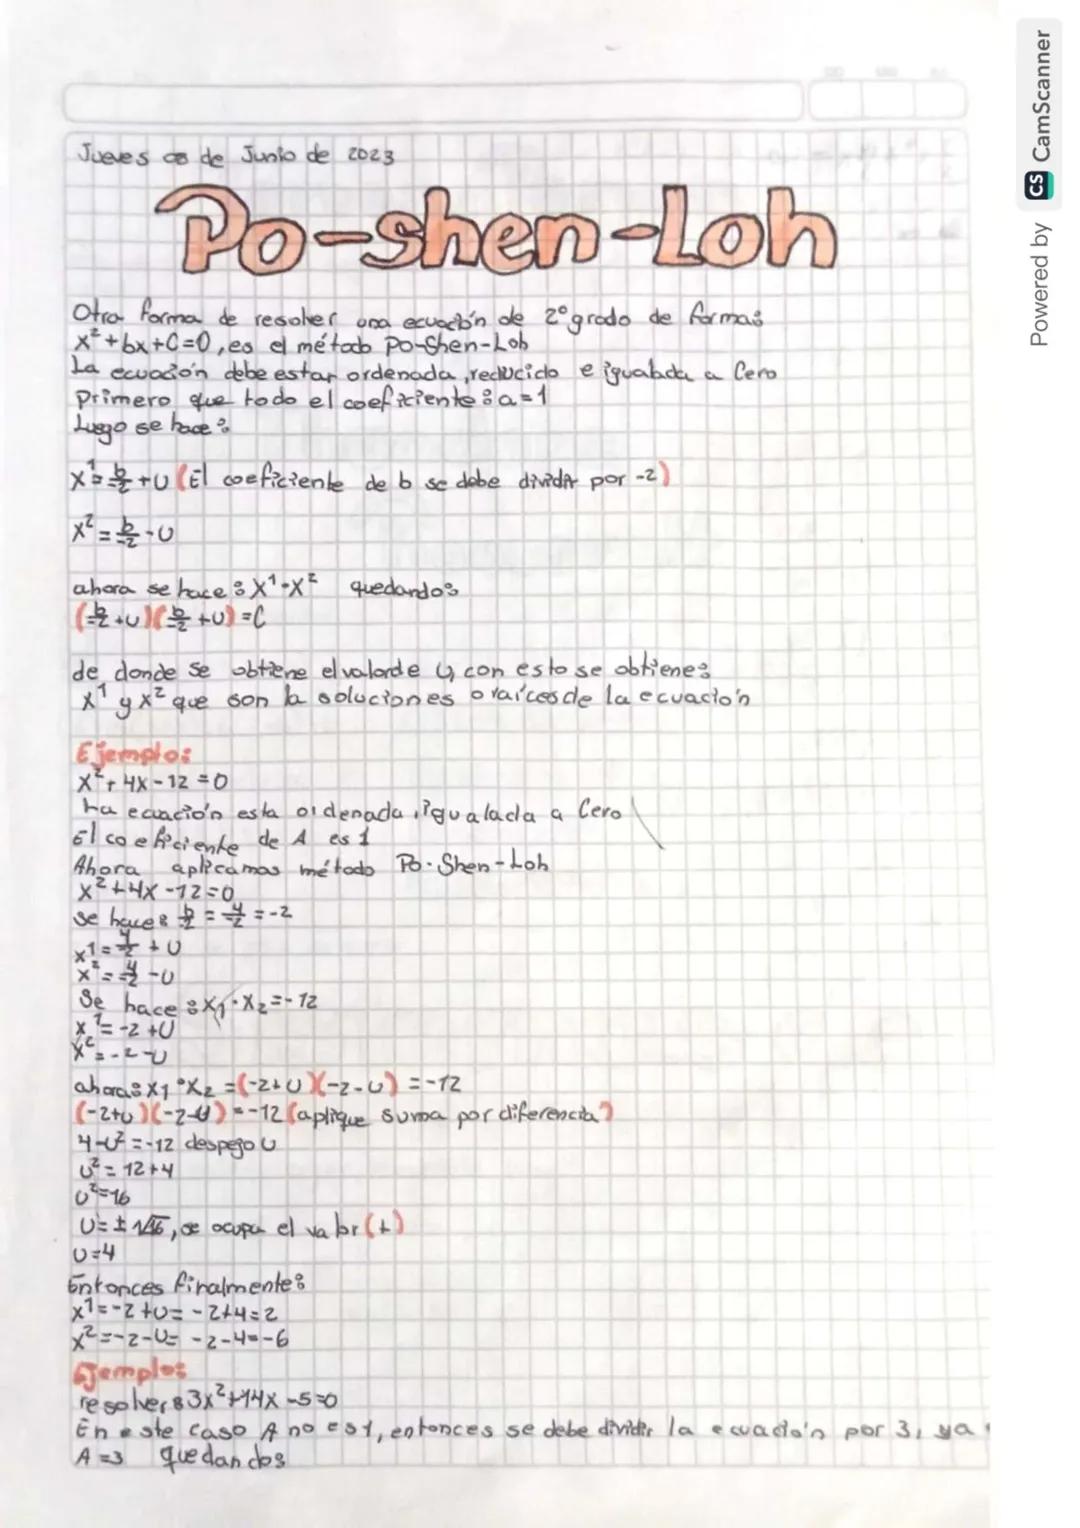 Jueves 08 de Junio de 2023
Po-shen-Loh
Otra forma de resolver una ecuación de 2° grado de forma:
x²+bx+C=0, es el método Po-Shen-Loh
La ecuación debe estar ordenada, reducida e igualada a Cero
Primero que todo el coeficiente: a=1
Luego se hace:
x¹=b/-2+U (El coeficiente de b se debe dividir por -2)
x²=b/-2-U
ahora se hace: x¹·x² quedando:
(b/-2+U)(b/-2+U)=C
de donde se obtiene el valor de U, con esto se obtiene:
x¹ y x² que son la soluciones o raíces de la ecuación
Ejemplo:
x²+4x-12=0
La ecuación esta ordenada, igualada a Cero
El coeficiente de A es 1
Ahora aplicamos método Po-Shen-Loh
x²+4x-12=0
se hace: b/-2=4/-2=-2
x¹=4/-2+U
x²=4/-2-U
Se hace: x₁·x₂=-12
x¹=-2+U
x²=-2-U
ahora: x₁·x₂=(-2+U)(-2-U)=-12
(-2+U)(-2-U)=-12 (aplique suma por diferencia)
4-U²=-12 despejo U
U²=12+4
U²=16
U=±√16, se ocupa el valor (+)
U=4
Entonces finalmente:
x¹=-2+U=-2+4=2
x²=-2-U=-2-4=-6
Ejemplo:
resolver: 3x²+14x-5=0
En este caso A no es 1, entonces se debe dividir la ecuación por 3, ya
A=3 quedando:
Powered by CS CamScanner